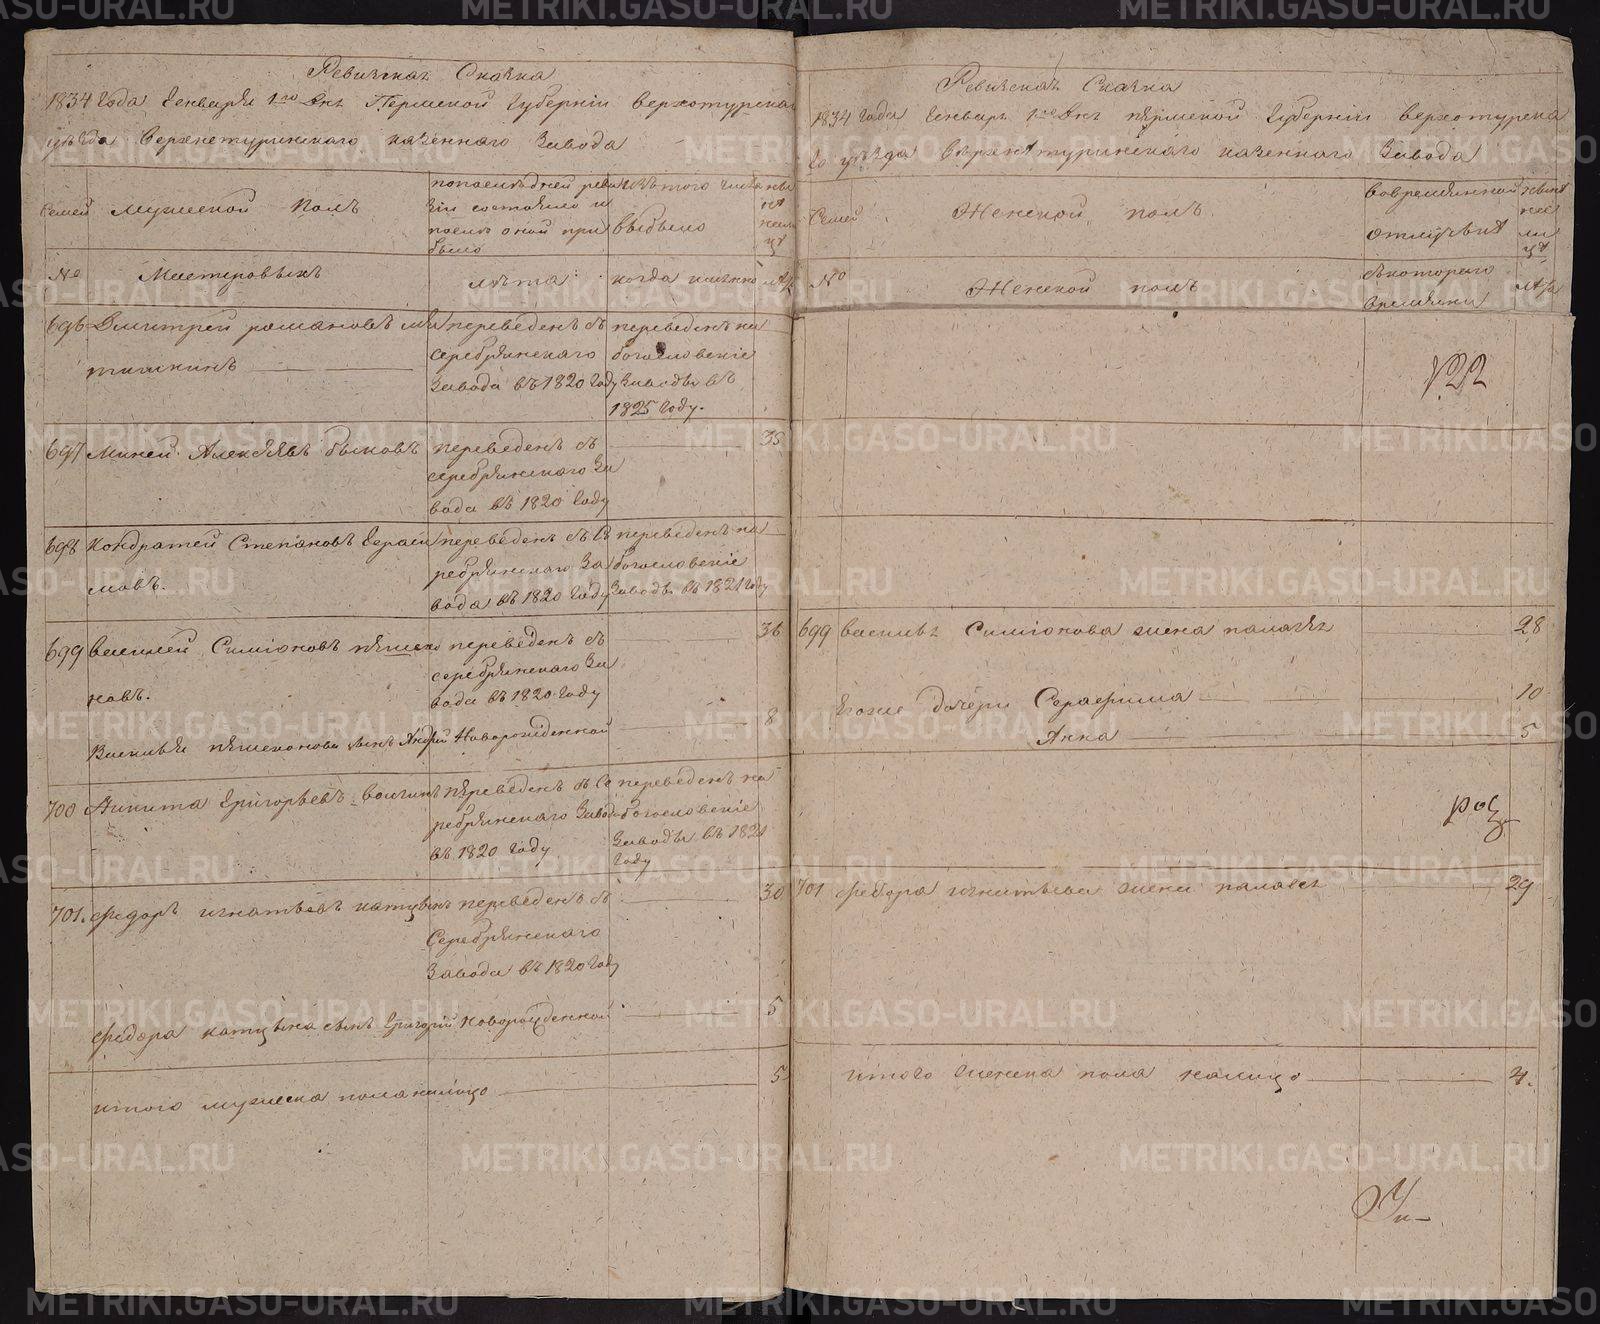 Ревизская Сказка
1834 Года Генваря 1го дня Пермской Губернiи Верхотурска
уѣзда Верхнетуринскаго казеннаго Завода
Семей
Мужеской полъ
попослѣдней реви
зiи состояло и
послѣ оной при
было
изътого числа
выбыло
№
Мастеровыхъ
лѣта
когда имянно
лѣта
696 Дмитрей романовъ
переведенъ съ
серебрянскаго
Завода въ 1820 году
переведенъ на
богословскiе
Заводы въ
1825 Году.
697 Миней Алексѣевъ быковъ
переведенъ съ
серебрянскаго За
вода въ 1820 Году
35
698 Кондратей Степановъ Гераси
мовъ.
переведенъ съ Се
ребрянскаго За
вода въ 1820 Году
переведенъ на
богословскiе
Заводы въ 1821 Году
699 Василей Симiоновъ пѣшехо
новъ.
переведенъ съ
серебрянскаго За
вода въ 1820 Году
36
Василья пѣшехонова сынъ Андрей Новорожденной
8
700 Никита Григорьевъ
переведенъ съ Се
ребрянскаго Завода
въ 1820 Году
переведенъ на
богословскiе
Заводы въ 1821
Году
701. Федоръ игнатьевъ
переведенъ съ
Серебрянскаго
Завода въ 1820 Году
30
Федора сынъ Григорiй Новорожденной
5
итого мужеска пола налицо
5
Ревизская Сказка
1834 Года Генваря 1го дня пермской Губернiи Верхотурска
го уѣзда Верхнетуринскаго казеннаго Завода
Семей
Женской полъ
вовременной
отлучкѣ
№
Женской полъ
съкотораго
времяни
лѣта
699 василья Симiонова жена палагея
28
Егоже дочери Серафима
10
Анна
5
701 федора игнатьева жена палагея
29
итого женска пола налицо
4.